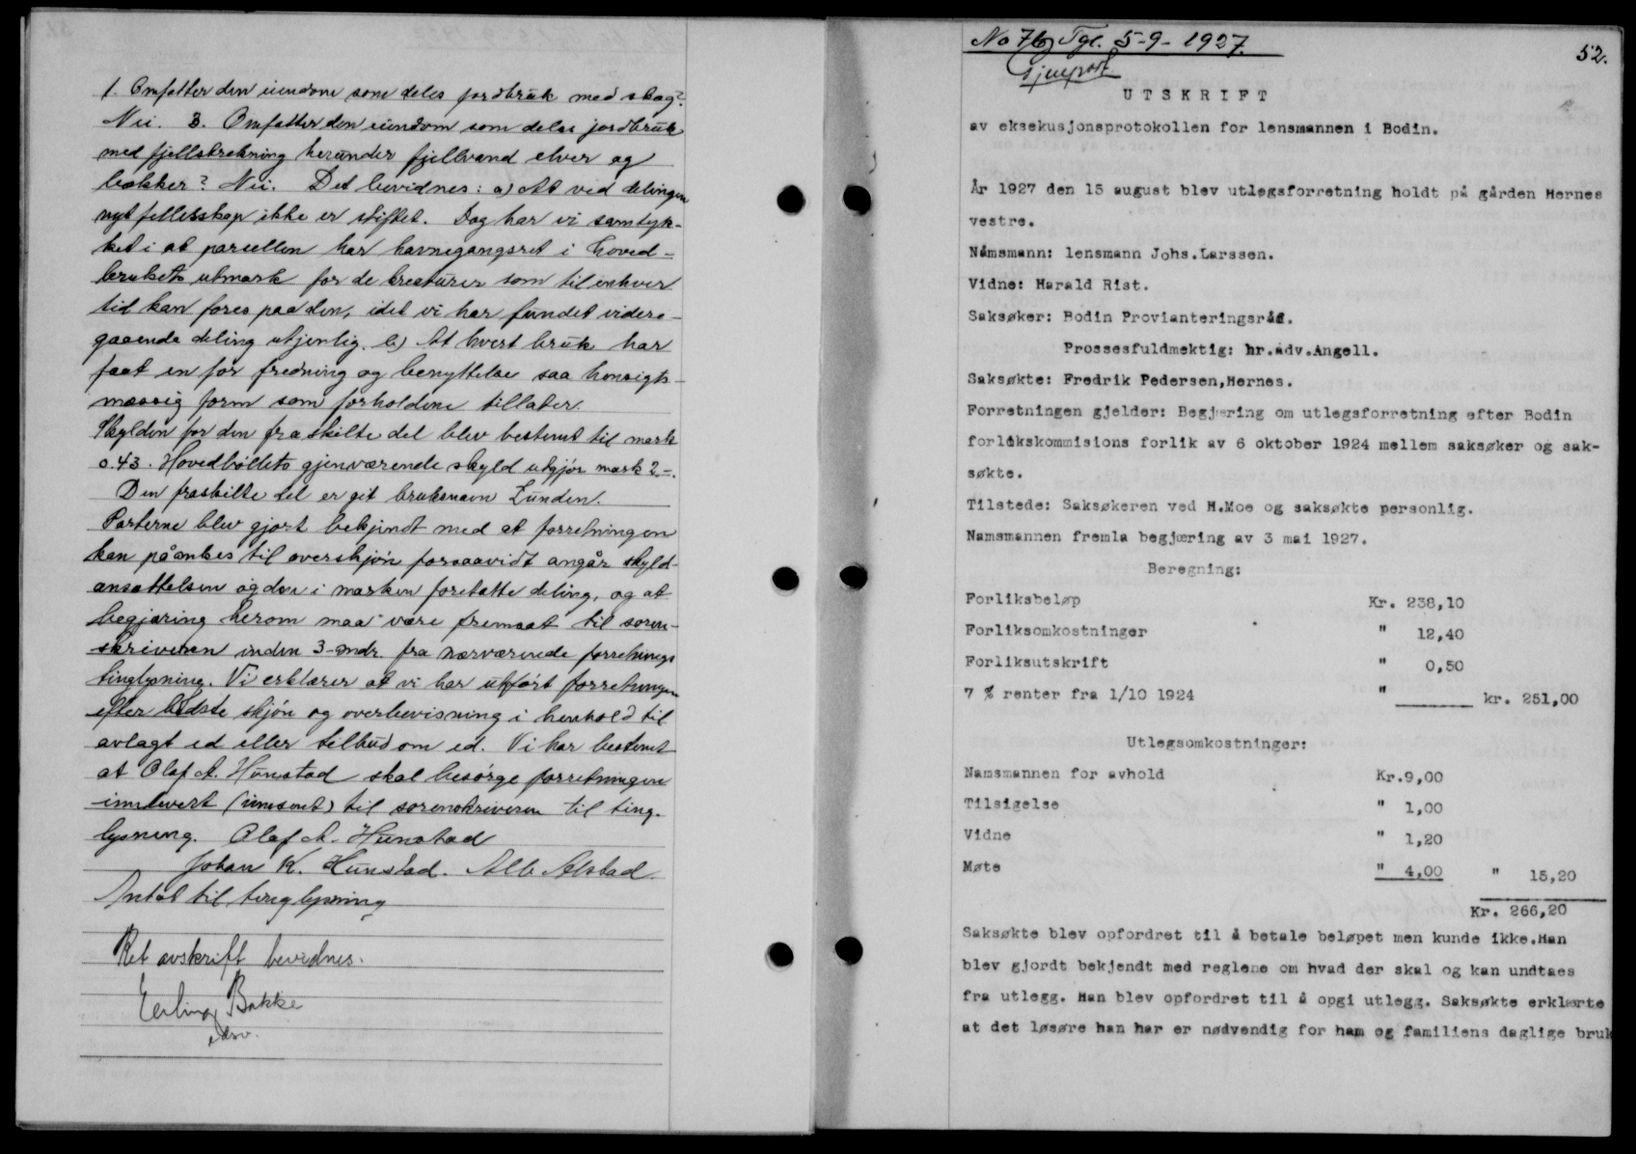 1. Omfatter den eiendom som deles jordbruk med skog?
Nei. 3. Omfatter den eiendom som deles jordbruk
med fjellstrekning herunder fjellvand elver og
bækker? Nei. Det bevidnes: a) At ved delingen
nyt fellesskap ikke er stiftet. Dog har vi samtyk-
ket i at parcellen har havnegangsret i hoved-
brukets utmark for de kreaturer som til enhver
tid kan fores paa den, idet vi har fundet videre-
gaaende deling utjenlig. b) At hvert bruk har
faat en for fredning og benyttelse saa hensigts-
mæssig form som forholdene tillater.
Skylden for den fraskilte del blev bestemt til mark
0.43. Hovedbøllets gjenværende skyld utgjør mark 2-.
Den fraskilte del er git bruksnavn Lunden.
Parterne blev gjort bekjendt med at forretningen
kan påankes til overskjøn forsaavidt angår skyld-
ansættelsen og den i marken foretatte deling, og at
begjæring herom maa være fremsat til soren-
skriveren inden 3-mdr. fra nærværende forretnings
tinglysning. Vi erklærer at vi har utført forretningen
efter bedste skjøn og overbevisning i henhold til
avlagt ed eller tilbud om ed. Vi har bestemt
at Olaf A. Hunstad skal besørge forretningen
innlevert (innsent) til sorenskriveren til ting-
lysning. Olaf A. Hunstad
Johan K. Hunstad. Alb. Alstad.
Antat til tinglysning
Ret avskrift bevidnes.
Erling Bakke
No 76 Tgl. 5-9-1927.
Gjenpart
52.
UTSKRIFT
av eksekusjonsprotokollen for lensmannen i Bodin.
År 1927 den 15 august blev utlegsforretning holdt på gården Hernes
vestre.
Namsmann: lensmann Johs.Larssen.
Vidne: Harald Rist.
Saksøker: Bodin Provianteringsråd.
Prossesfuldmektig: hr.adv.Angell.
Saksøkte: Fredrik Pedersen,Hernes.
Forretningen gjelder: Begjæring om utlegsforretning efter Bodin
forlikskommisions forlik av 6 oktober 1924 mellem saksøker og sak-
søkte.
Tilstede: Saksøkeren ved H.Moe og saksøkte personlig.
Namsmannen fremla begjæring av 3 mai 1927.
Beregning:
Forliksbeløp Kr. 238,10
Forliksomkostninger " 12,40
Forliksutskrift " 0,50
7 % renter fra 1/10 1924 " kr. 251,00
Utlegsomkostninger:
Namsmannen for avhold Kr.9,00
Tilsigelse " 1,00
Vidne " 1,20
Møte " 4,00 " 15,20
Kr. 266,20
Saksøkte blev opfordret til å betale beløpet men kunde ikke.Han
blev gjordt bekjendt med reglene om hvad der skal og kan undtaes
fra utlegg. Han blev opfordret til å opgi utlegg. Saksøkte erklærte
at det løsøre han har er nødvendig for ham og familiens daglige bruk